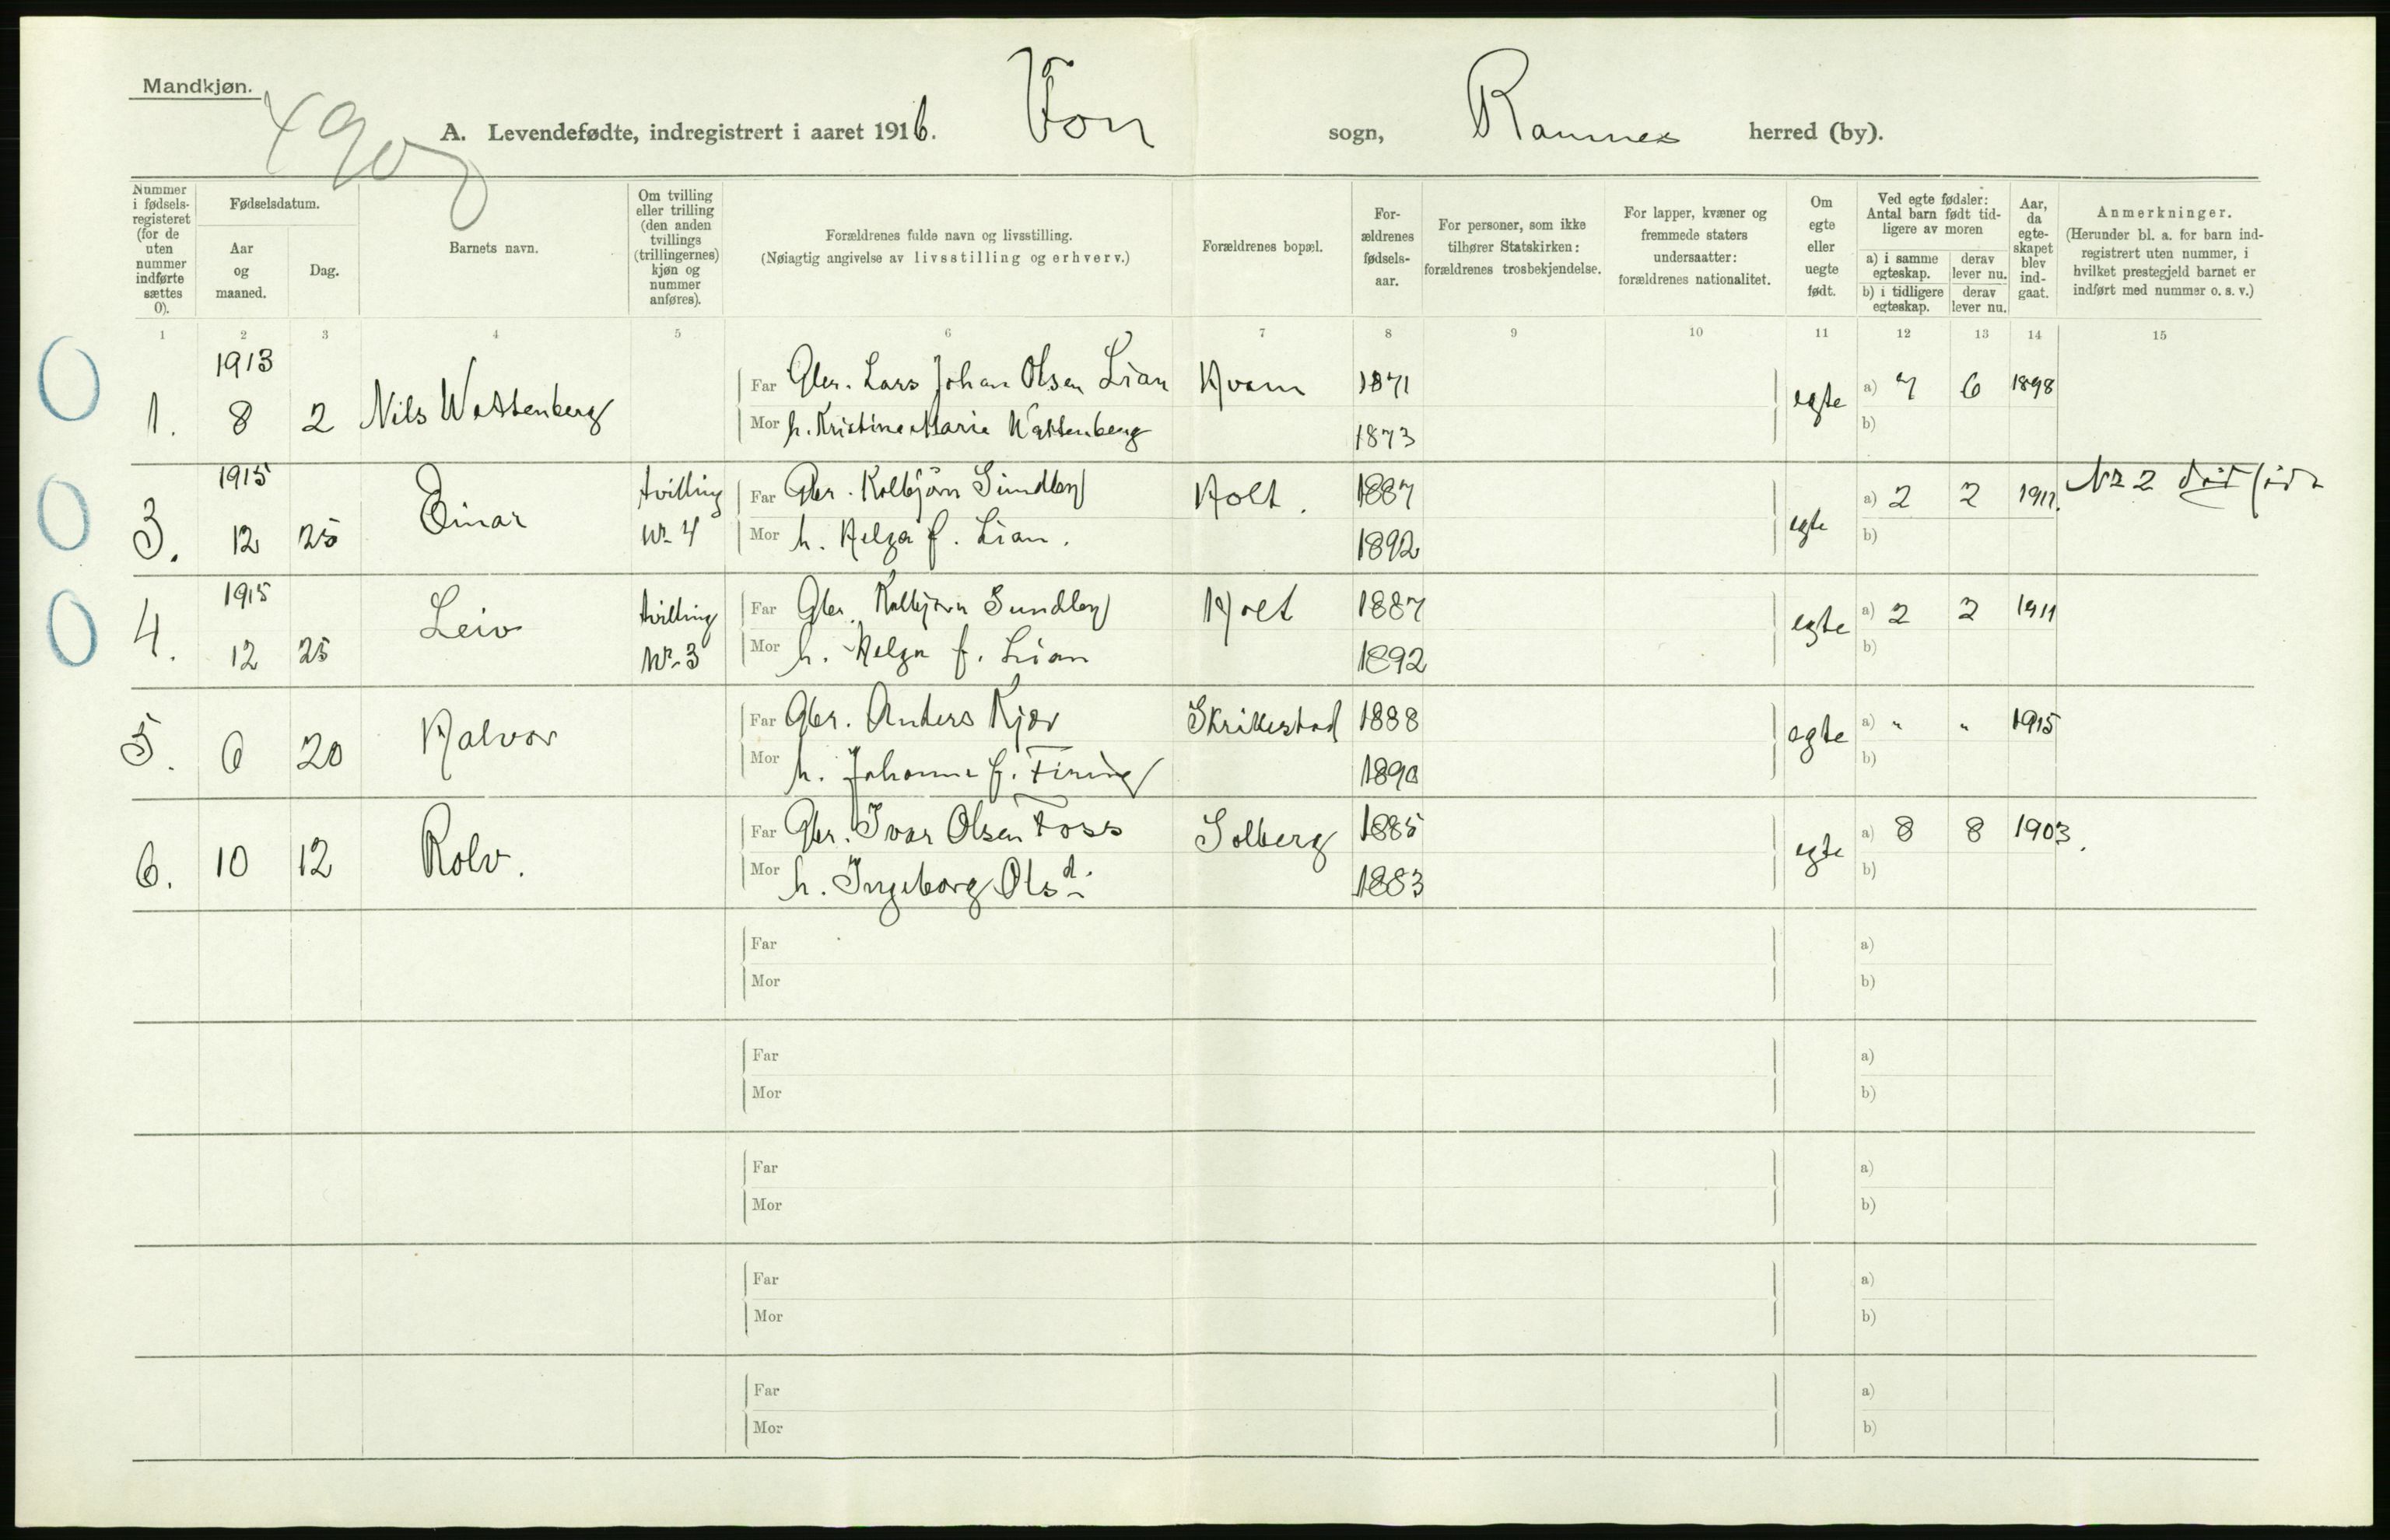 Mandkjøn.
490
A. Levendefødte, indregistrert i aaret 1916. Fon sogn, Ramnes herred (by).
Nummer i fødsels-registeret (for de uten nummer indførte sættes 0).
Fødselsdatum.
Aar og maaned.
Dag.
Barnets navn.
Om tvilling eller trilling (den anden tvillings (trillingernes) kjøn og nummer anføres).
Forældrenes fulde navn og livsstilling.
(Nøiagtig angivelse av livsstilling og erhverv.)
Forældrenes bopæl.
For-ældrenes fødsels-aar.
For personer, som ikke tilhører Statskirken: forældrenes trosbekjendelse.
For lapper, kvæner og fremmede staters undersaatter: forældrenes nationalitet.
Om egte eller uegte født.
Ved egte fødsler: Antal barn født tid-ligere av moren
a) i samme egteskap. derav lever nu.
b) i tidligere egteskap. derav lever nu.
Aar, da egte-skapet blev ind-gaat.
Anmerkninger.
(Herunder bl. a. for barn ind-registrert uten nummer, i hvilket prestegjeld barnet er indført med nummer o. s. v.)
1 2 3 4 5 6 7 8 9 10 11 12 13 14 15
0 1. 1913 8 2 Nils Wattenberg Far Gbr. Lars Johan Olsen Lian Kvam 1871 egte a) 7 6 1898
Mor h. Kristine Marie Wattenberg 1873 b)
0 3. 1915 12 25 Einar tvilling Nr 4 Far Gbr. Kolbjørn Sundby Holt. 1887 egte a) 2 2 1911. Nr 2 død født
Mor h. Helga f. Lian. 1892 b)
0 4. 1915 12 25 Leiv tvilling Nr 3 Far Gbr. Kolbjørn Sundby Holt 1887 egte a) 2 2 1911
Mor h. Helga f. Lian 1892 b)
5. 6 20 Halvor Far Gbr. Anders Kjær Skrillestad 1888 egte a) " " 1915
Mor h. Johanne f. Firing 1890 b)
6. 10 12 Rolv. Far Gbr. Ivar Olsen Foss Solberg 1885 egte a) 8 8 1903.
Mor h. Ingeborg Olsd. 1883 b)
Far a)
Mor b)
Far a)
Mor b)
Far a)
Mor b)
Far a)
Mor b)
Far a)
Mor b)